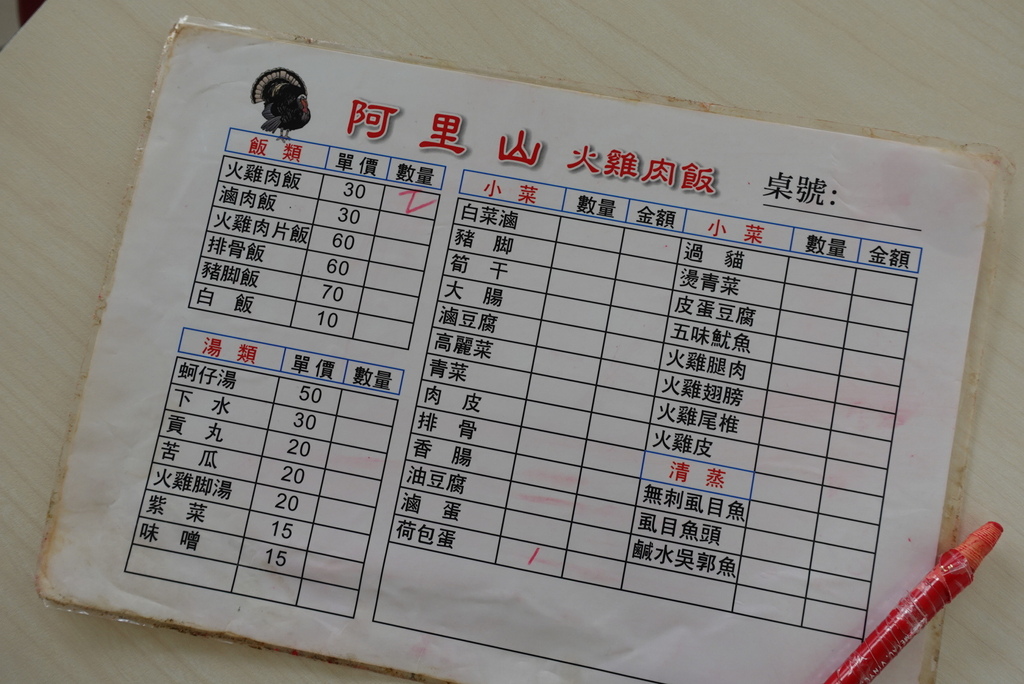 阿里山 火雞肉飯
桌號:
飯類 單價 數量
火雞肉飯 30 2
滷肉飯 30
火雞肉片飯 60
排骨飯 60
豬脚飯 70
白飯 10
湯類 單價 數量
蚵仔湯 50
下水 30
貢丸 20
苦瓜 20
火雞脚湯 20
紫菜 15
味噌 15
小菜 數量 金額
白菜滷
豬脚
筍干
大腸
滷豆腐
高麗菜
青菜
肉皮
排骨
香腸
油豆腐
滷蛋
荷包蛋 1
小菜 數量 金額
過貓
燙青菜
皮蛋豆腐
五味魷魚
火雞腿肉
火雞翅膀
火雞尾椎
火雞皮
清蒸
無刺虱目魚
虱目魚頭
鹹水吳郭魚